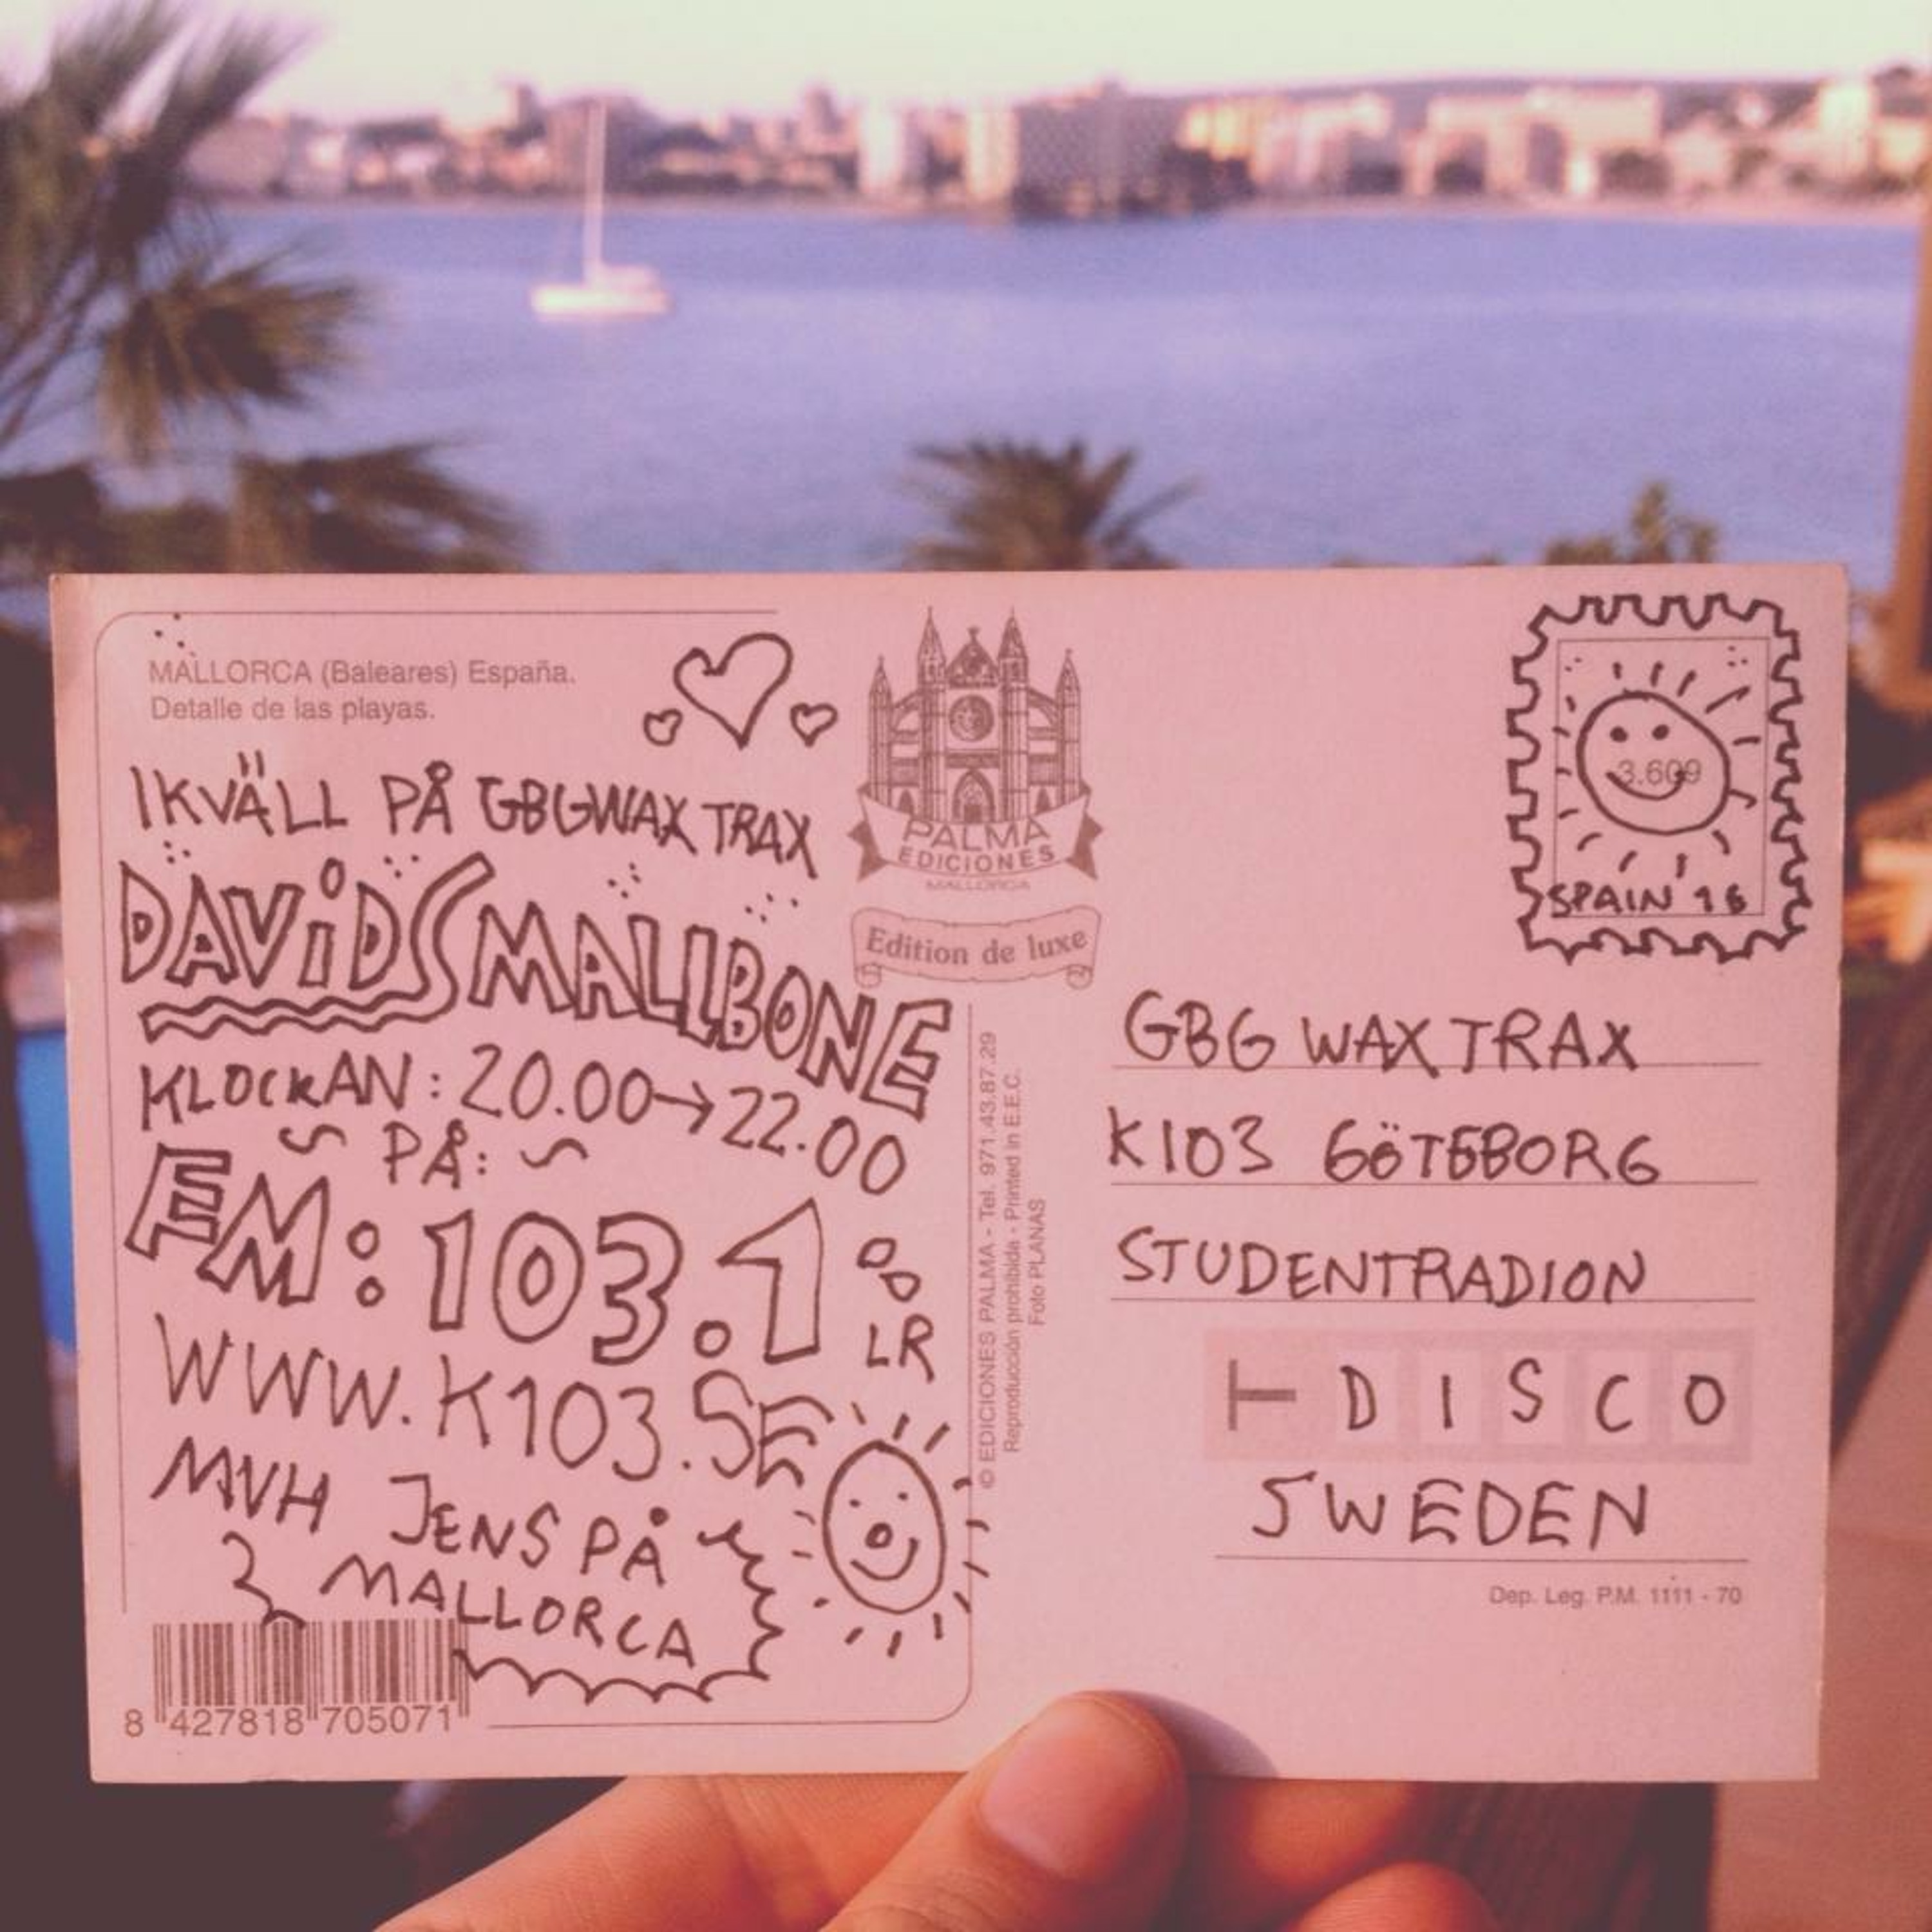 MALLORCA (Baleares) España.
Detalle de las playas.
IKVÄLL PÅ GBGWAXTRAX
DAViD SMALLBONE
KLOCKAN: 20.00→22.00
~ PÅ: ~
FM: 103.1 %
LR
WWW.K103.SE
MVH JENS PÅ
MALLORCA
8 427818 705071
PALMA
EDICIONES
MALLORCA
Edition de luxe
© EDICIONES PALMA - Tel. 971.43.87.29
Reproducción prohibida - Printed in E.E.C.
Foto PLANAS
3.609
SPAIN '16
GBG WAXTRAX
K103 GÖTEBORG
STUDENTRADION
DISCO
SWEDEN
Dep. Leg. P.M. 1111 - 70